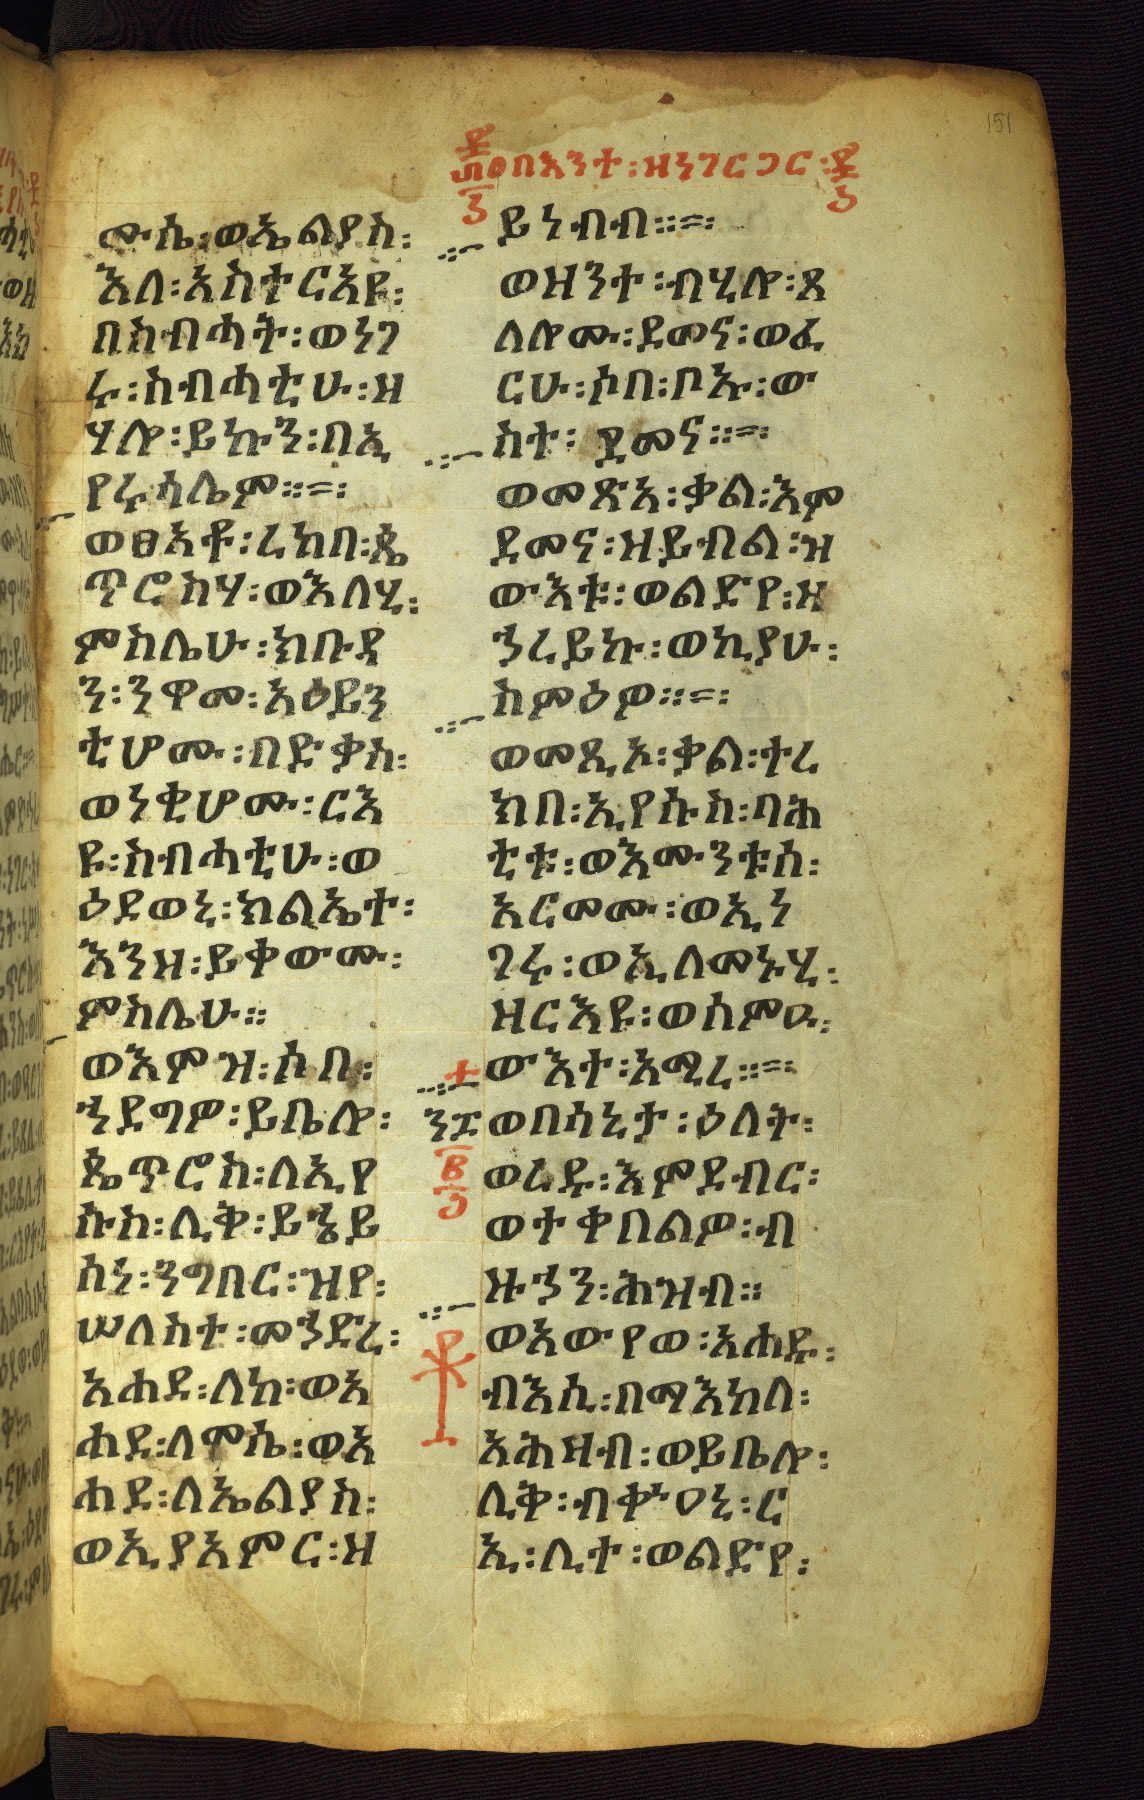 151
በእንተ፡ዘነገርጋር፡
ሙሴ፡ወኤልያስ፡
እለ፡አስተርአዩ፡
በስብሓት፡ወነገ
ሩ፡ስብሓቲሁ፡ዘ
ሃሎ፡ይኩን፡በኢ
የሩሳሌም።=፡
ወፀአቶ፡ረከበ፡ጴ
ጥሮስሃ፡ወእለሂ፡
ምስሌሁ፡ክቡዳ
ን፡ንዋመ፡አዕይን
ቲሆሙ፡በድቃስ፡
ወነቂሆሙ፡ርእ
ዩ፡ስብሓቲሁ፡ወ
ዕደወኒ፡ክልኤተ፡
እንዘ፡ይቀውሙ፡
ምስሌሁ።
ወእምዝ፡ሶበ፡
ኀደግዎ፡ይቤሎ፡
ጴጥሮስ፡ለኢየ
ሱስ፡ሊቅ፡ይኄይ
ሰነ፡ንግበር፡ዝየ፡
ሠለስተ፡መኀድረ፡
አሐደ፡ለከ፡ወአ
ሐደ፡ለሙሴ፡ወአ
ሐደ፡ለኤልያስ፡
ወኢያአምር፡ዘ
ይነብብ።=፡
ወዘንተ፡ብሂሎ፡ጸ
ለሎሙ፡ደመና፡ወፈ
ርሁ፡ሶበ፡ቦኡ፡ው
ስተ፡ደመና።=፡
ወመጽአ፡ቃል፡እም
ደመና፡ዘይብል፡ዝ
ውእቱ፡ወልድየ፡ዘ
ኀረይኩ፡ወኪያሁ፡
ስምዕዎ።=፡
ወመጺኦ፡ቃል፡ተረ
ክበ፡ኢየሱስ፡ባሕ
ቲቱ፡ወእሙንቱሰ፡
አርመሙ፡ወኢነ
ገሩ፡ወኢለመኑሂ፡
ዘርእዩ፡ወሰምዑ፡
ውእተ፡አሚረ።=፡
ወበሳኒታ፡ዕለት፡
ወረዱ፡እምደብር፡
ወተቀበልዎ፡ብ
ዙኃን፡ሕዝብ።
ወአውየወ፡አሐዱ፡
ብእሲ፡በማእከለ፡
አሕዛብ፡ወይቤሎ፡
ሊቅ፡ብቍዐኒ፡ር
ኢ፡ሊተ፡ወልድየ፡